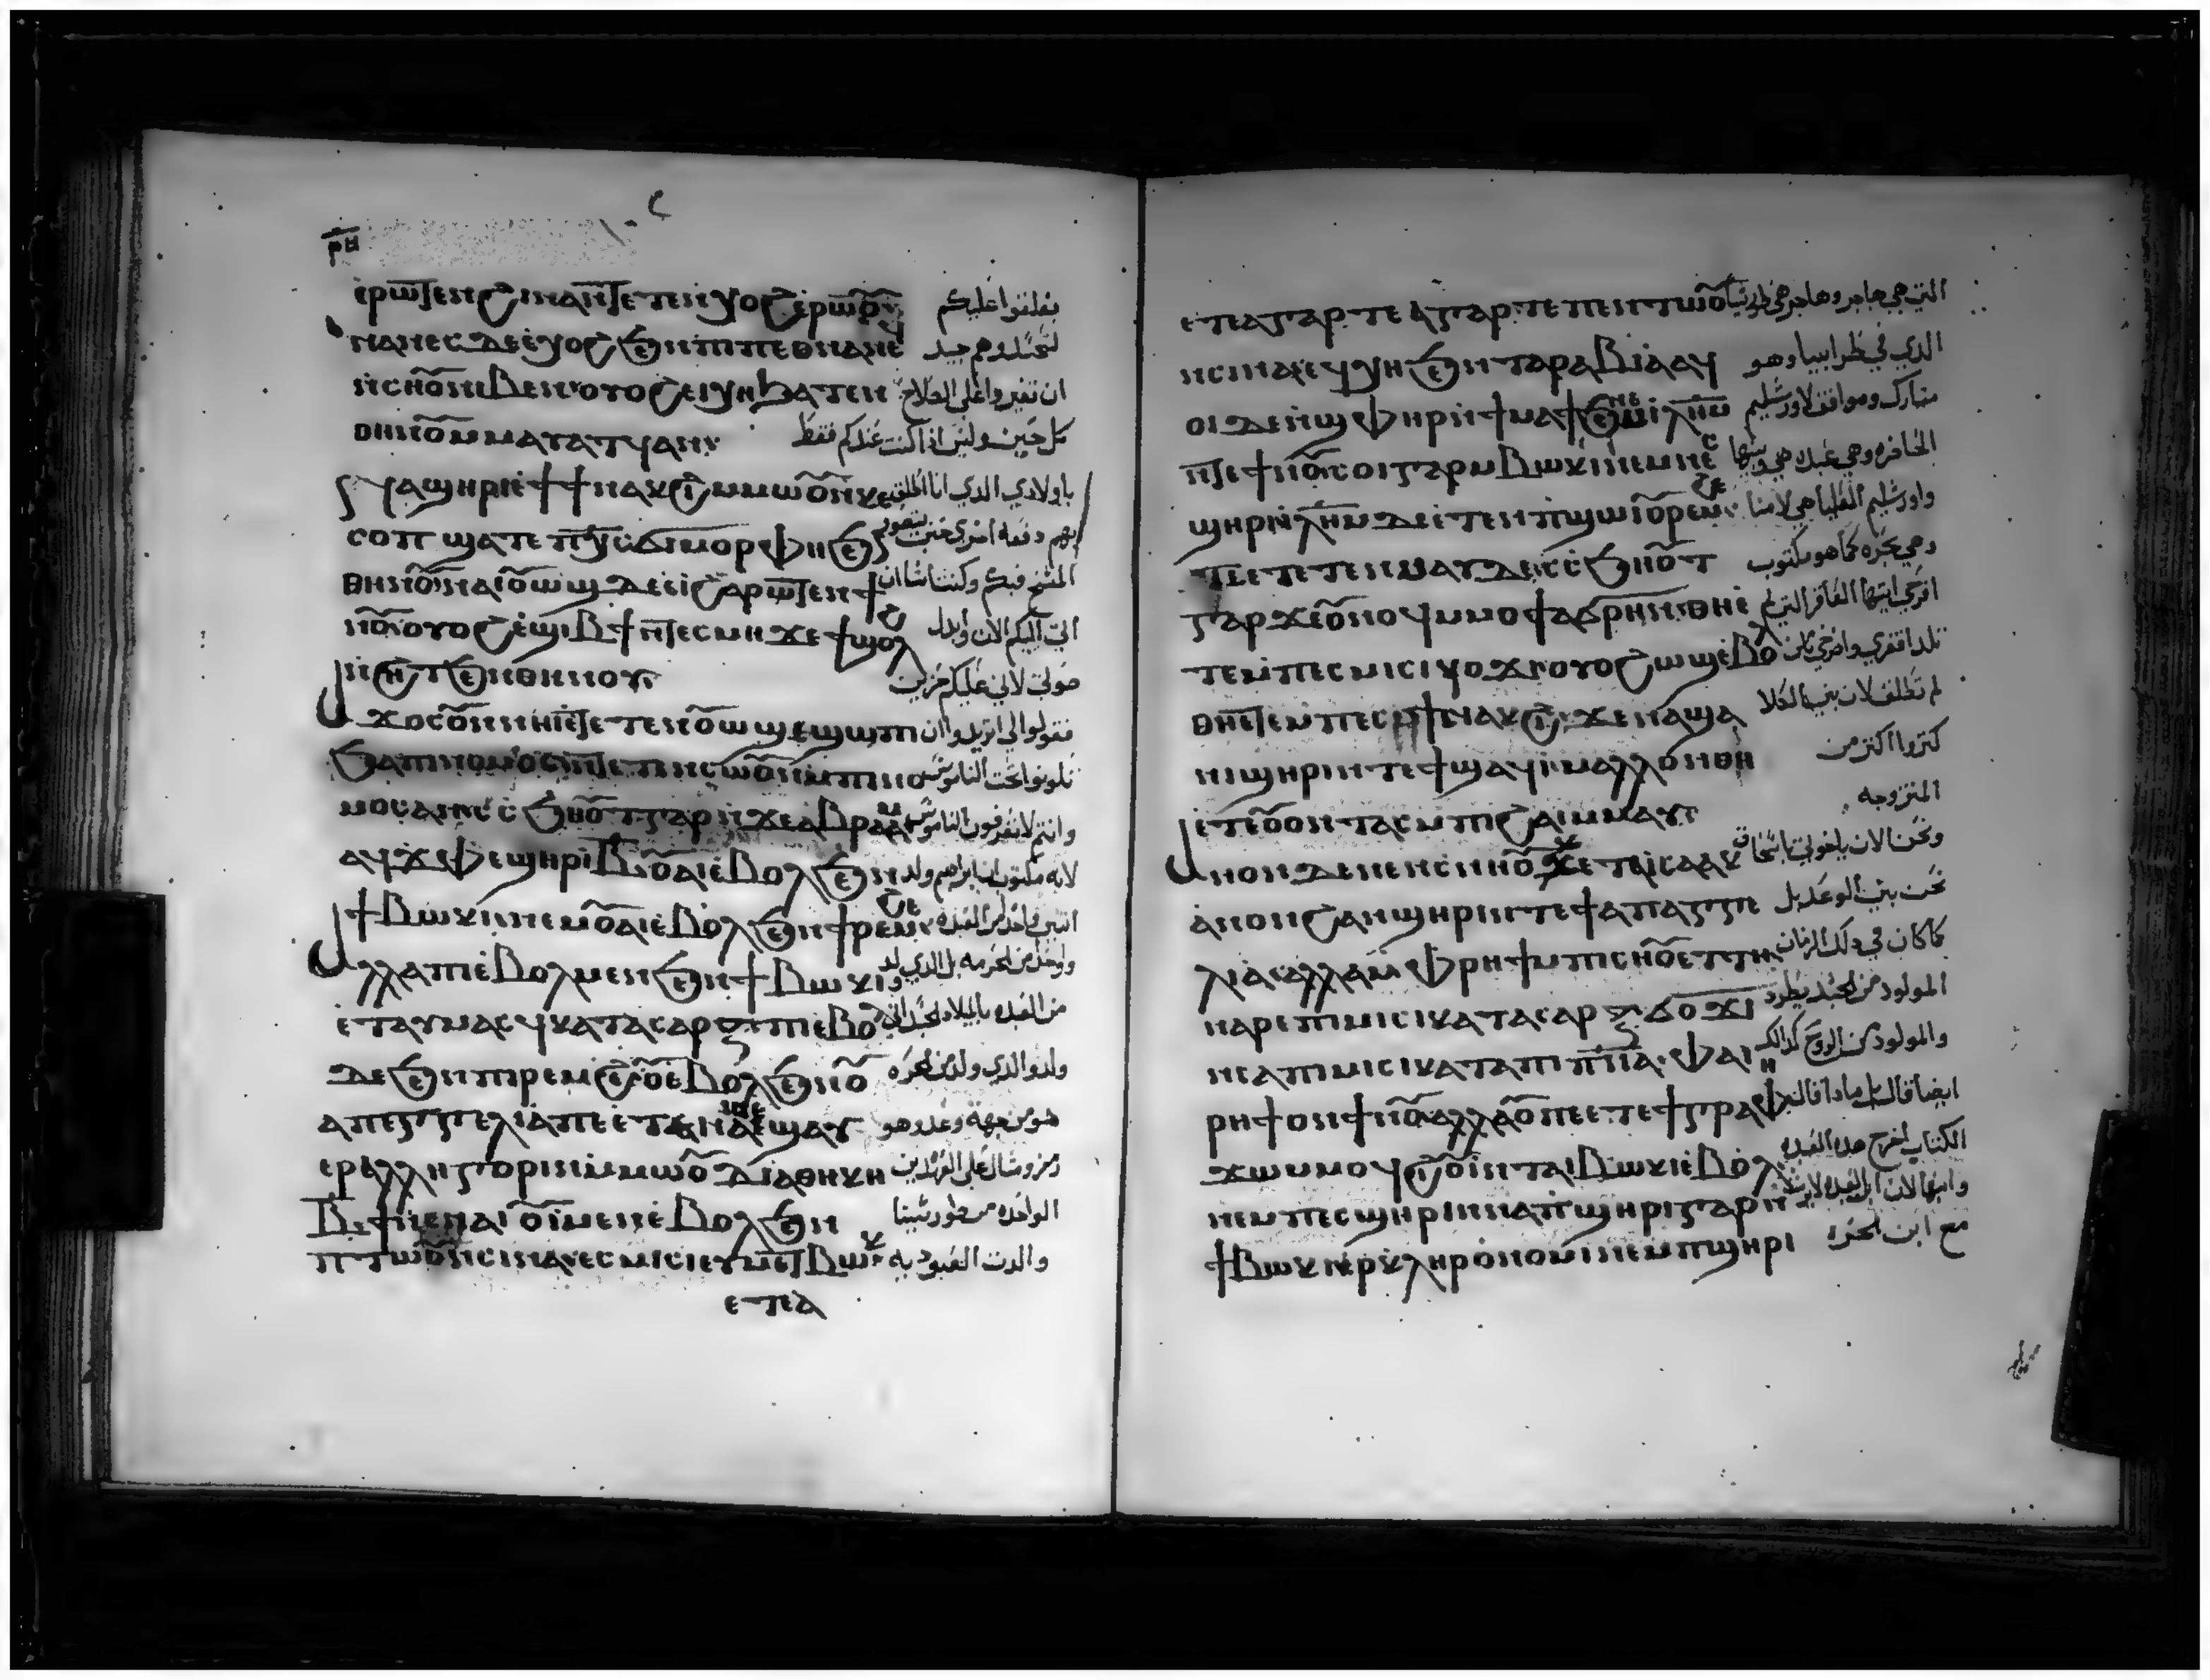 ⲣⲏ
ⲉⲣⲱⲧⲉⲛ ϩⲓⲛⲁ ⲛⲧⲉⲧⲉⲛⲭⲟϩ ⲉⲣⲱⲟⲩ يغلقوا عليكم
ⲛⲁⲛⲉⲥ ⲇⲉ ⲉⲭⲟϩ ϧⲉⲛ ⲡⲓⲡⲉⲑⲛⲁⲛⲉ لتحسدوهم جيد
ⲛⲥⲏⲟⲩ ⲛⲓⲃⲉⲛ ⲟⲩⲟϩ ⲉⲓⲭⲏ ϧⲁⲧⲉⲛ ان تغيروا على الصلاح
ⲑⲏⲛⲟⲩ ⲙⲙⲁⲩⲁⲧϥ ⲁⲛ كل حين وليس اذا كنت عندكم فقط
ⲛⲁϣⲏⲣⲓ ⲛⲏ ⲉϯⲛⲁⲕϩⲓ ⲙⲙⲱⲟⲩ ⲛⲕⲉ ياولادي الذي انا اطلق
ⲥⲟⲡ ϣⲁⲧⲉ ⲡⲭⲥ ϭⲓⲙⲟⲣⲫⲏ ϧⲉⲛ بهم دفعه اخري حتى يتصور
ⲑⲏⲛⲟⲩ ⲛⲁⲓⲟⲩⲱϣ ⲇⲉ ⲉⲓ ϩⲁⲣⲱⲧⲉⲛ ϯ المسيح فيكم وكنت اشا ان
ⲛⲟⲩ ⲟⲩⲟϩ ⲉϣⲓⲃϯ ⲛⲧⲉⲥⲙⲏ ϫⲉ ϯϣⲟⲗ اتي اليكم الان وابدل
ⲛϩⲏⲧ ϧⲉⲛ ⲑⲏⲛⲟⲩ صوتي لاني عليكم حزين
ⲁϫⲟⲥ ⲟⲩⲛ ⲛⲏⲓ ⲛⲏⲉⲧⲉⲧⲉⲛⲟⲩⲱϣ ⲉϣⲱⲡⲓ فقولوا لي اتريدوا ان
ϧⲁ ⲡⲓⲛⲟⲙⲟⲥ ⲛⲧⲉⲧⲉⲛⲥⲱⲧⲉⲙ ⲙⲡⲓⲛⲟ تكونوا تحت الناموس
ⲙⲟⲥ ⲁⲛ ⲥⲥϧⲏⲟⲩⲧ ⲅⲁⲣ ϫⲉ ⲁⲃⲣⲁⲁⲙ وانتم لا تعرفون الناموس
ⲁϥϫⲫⲉ ϣⲏⲣⲓ ⲃ ⲟⲩⲁⲓ ⲉⲃⲟⲗ ϧⲉⲛ لانه مكتوب ان ابراهيم ولد
ϯⲃⲱⲕⲓ ⲛⲉⲙ ⲟⲩⲁⲓ ⲉⲃⲟⲗ ϧⲉⲛ ϯⲣⲉⲙϩⲉ اثنين واحد من العبده
ⲁⲗⲗⲁ ⲡⲓⲉⲃⲟⲗ ⲙⲉⲛ ϧⲉⲛ ϯⲃⲱⲕⲓ وواحد من الحره بل الذي ولد
ⲉⲧⲁⲩⲙⲁⲥϥ ⲕⲁⲧⲁ ⲥⲁⲣⲝ ⲡⲓⲉⲃⲟⲗ من العبده بالميلاد الجسداني
ⲇⲉ ϧⲉⲛ ϯⲣⲉⲙϩⲉ ⲟⲩⲉⲃⲟⲗ ϧⲉⲛ ⲟⲩ ولد والذي ولد من الحره
ⲁⲡⲉⲅⲅⲉⲗⲓⲁ ⲡⲉ ⲉⲧⲉ ⲛⲁⲓ ⲛⲉ ϣⲁⲩ هو من جهة وعد وهو
ⲉⲣⲁⲗⲗⲏⲅⲟⲣⲓⲛ ⲙⲙⲱⲟⲩ ⲇⲓⲁⲑⲏⲕⲏ رمز ومثال على العهدين
ⲃϯ ⲛⲉ ⲛⲁⲓ ⲟⲩⲓ ⲙⲉⲛ ⲉⲃⲟⲗ ϧⲉⲛ الواحده من طور سينا
ⲡⲧⲱⲟⲩ ⲛⲥⲓⲛⲁ ⲉⲥⲙⲓⲥⲓ ⲉⲩⲙⲉⲧⲃⲱⲕ والدت العبوديه
ⲉⲧⲉⲁ
ⲉⲧⲉ ⲁⲅⲁⲣ ⲧⲉ ⲁⲅⲁⲣ ⲧⲉ ⲡⲉ ⲡⲧⲱⲟⲩ التي هي هاجر وهاجر هي طور سينا
ⲛⲥⲓⲛⲁ ⲉϥⲭⲏ ϧⲉⲛ ⲧⲁⲣⲁⲃⲓⲁ ⲁϥ الذي في طرابيا وهو
ⲟⲓ ⲇⲉ ⲛϣⲫⲏⲣⲓ ⲛϯⲙⲁϯ ϧⲉⲛ ⲓⲗⲏⲙ متبارك وموافق لاورشليم
ⲛⲧⲉ ϯⲛⲟⲩ ⲥⲟⲓ ⲅⲁⲣ ⲙⲃⲱⲕⲓ ⲛⲉⲙ ⲛⲉⲥ الحاضره وهي عبده هي وبنيها
ϣⲏⲣⲓ ⲓⲗⲏⲙ ⲇⲉ ⲉⲧⲉⲙⲡϣⲱⲓ ⲟⲩⲣⲉⲙϩⲉ واورشليم العليا هي لامنا
ⲧⲉ ⲉⲧⲉ ⲧⲉⲛⲙⲁⲩ ⲇⲉ ⲥⲥϧⲏⲟⲩⲧ وهي بحره كما هو مكتوب
ⲅⲁⲣ ϫⲉ ⲟⲩⲛⲟϥ ⲙⲙⲟ ϯⲁϭⲣⲏⲛ ⲑⲏ ⲉ افرحي ايتها العاقر التي لم
ⲧⲉⲙⲡⲉⲥⲙⲓⲥⲓ ⲭⲟ ϫⲣⲟ ⲟⲩⲟϩ ⲱϣ ⲉⲃⲟⲗ
ⲑⲏ ⲉⲧⲉⲙⲡⲉⲥϯⲛⲁⲕϩⲓ ϫⲉ ⲛⲁϣⲁ لم تطلق لان بني الخلا
ⲛⲓϣⲏⲣⲓ ⲛⲧⲉ ϯϣⲁϥⲓ ⲙⲁⲗⲗⲟⲛ ⲑⲏ كثروا اكثر من
ⲉⲧⲉ ⲟⲩⲟⲛⲧⲁⲥ ⲙⲡϩⲁⲓ ⲙⲙⲁⲩ المتزوجه
ⲁⲛⲟⲛ ⲇⲉ ⲛⲉⲛⲥⲛⲏⲟⲩ ⲕⲁⲧⲁ ⲓⲥⲁⲁⲕ ونحن الان ياخوتي باسحاق
ⲁⲛⲟⲛ ϩⲁⲛϣⲏⲣⲓ ⲛⲧⲉ ϯⲁⲡⲁⲅⲅⲉ نحن بني الوعد بل
ⲗⲓⲁ ⲁⲗⲗⲁ ⲙⲫⲣⲏϯ ⲙⲡⲓⲥⲏⲟⲩ ⲉⲧⲧⲏ كما كان في ذلك الزمان
ⲛⲁⲣⲉ ⲡⲓⲙⲓⲥⲓ ⲕⲁⲧⲁ ⲥⲁⲣⲝ ϭⲟϫⲓ المولود من الجسد يطرد
ⲛⲥⲁ ⲡⲓⲙⲓⲥⲓ ⲕⲁⲧⲁ ⲡⲓⲡⲛⲁ ⲫⲁⲓ ⲡⲉ والمولود من الروح كذلك
ⲣⲏϯ ⲟⲛ ϯⲛⲟⲩ ⲁⲗⲗⲁ ⲟⲩ ⲡⲉⲧⲉ ϯⲅⲣⲁⲫⲏ ايضا قال بل ماذا قال
ϫⲱ ⲙⲙⲟϥ ϩⲓⲟⲩⲓ ⲛⲧⲁⲓⲃⲱⲕⲓ ⲉⲃⲟⲗ الكتاب اخرج هذه العبده
ⲛⲉⲙ ⲡⲉⲥϣⲏⲣⲓ ⲛⲛⲁ ⲡϣⲏⲣⲓ ⲅⲁⲣ ⲛ وابنها لان ابن العبده لا يرث
ϯⲃⲱⲕⲓ ⲉⲣⲕⲗⲏⲣⲟⲛⲟⲙⲓⲛ ⲛⲉⲙ ⲡϣⲏⲣⲓ مع ابن الحره